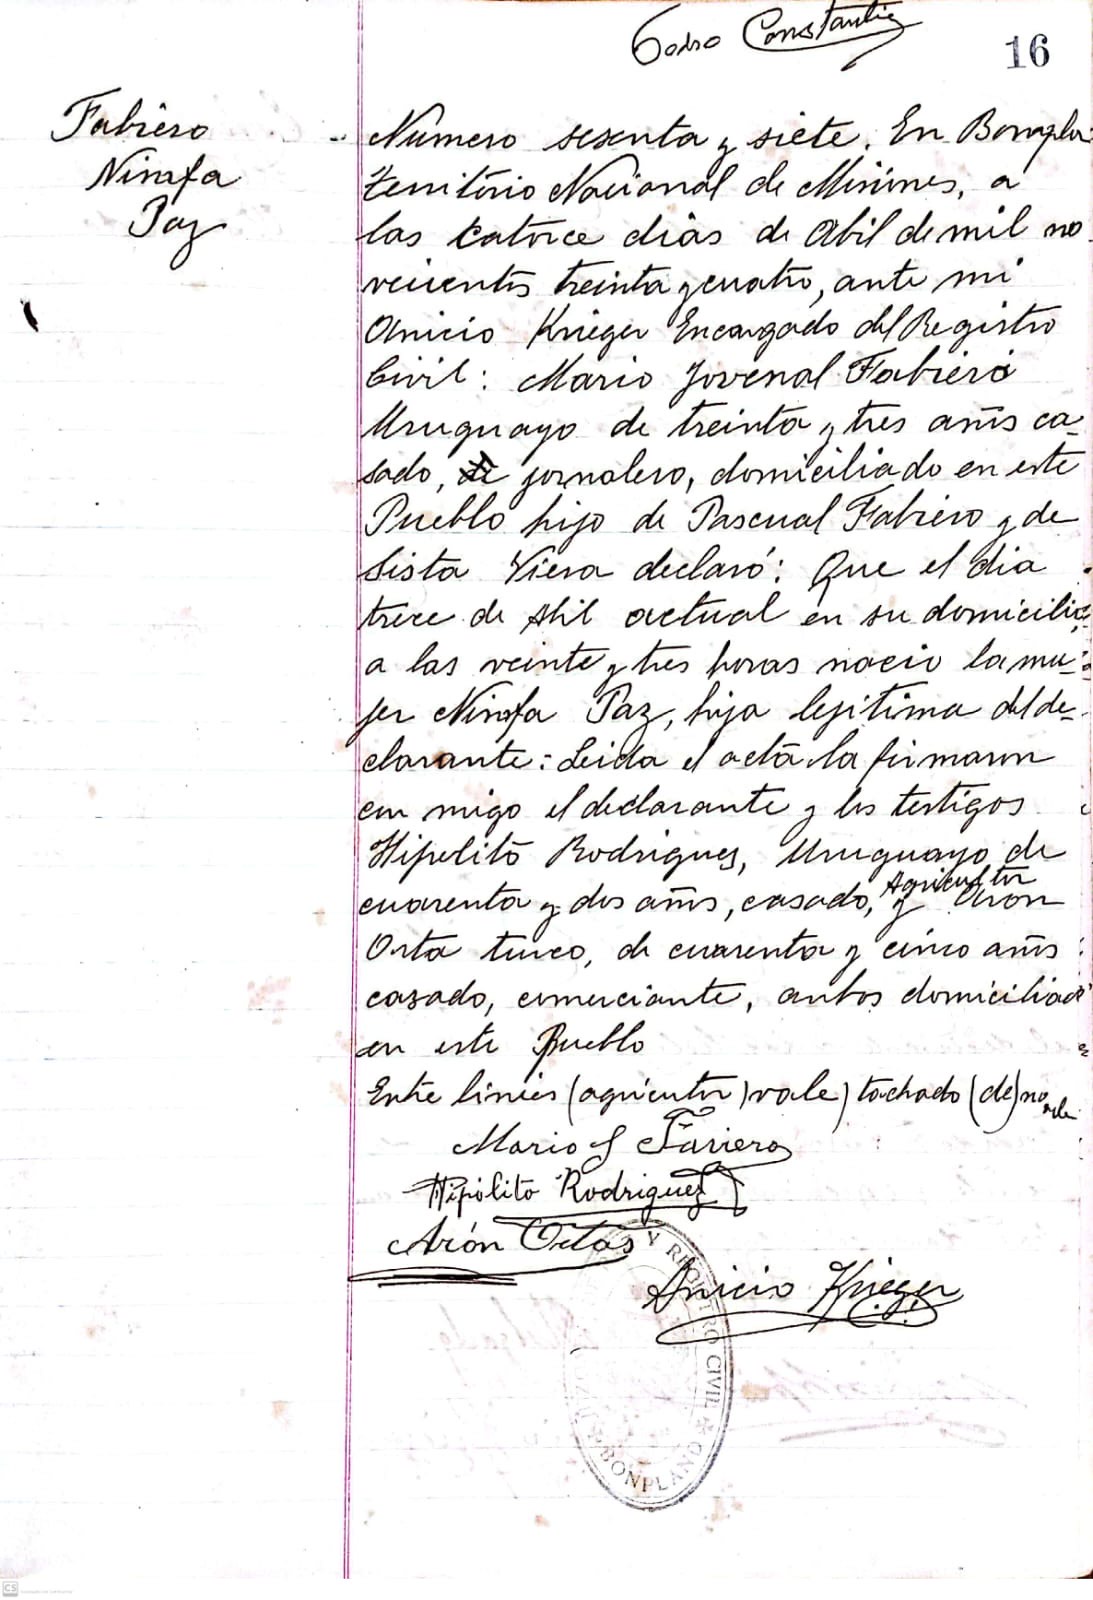 Pedro Constantin
16
Fabiero
Ninfa
Paz
Número sesenta y siete. En Bonpla
territorio Nacional de Misiones, a
las catorce dias de Abil de mil no
vecientos treinta y cuatro, ante mi
Anicio Krieger Encargado del Registro
Civil: Mario Jovenal Fabiero
Uruguayo de treinta y tres años ca-
sado, de jornalero, domiciliado en este
Pueblo hijo de Pascual Fabiero y de
Sista Viera declaró: Que el dia
trece de Abil actual en su domicilio,
a las veinte y tres horas nacio la mu-
jer Ninfa Paz, hija legitima del de-
clarante: Leida el acta la firmaron
con migo el declarante y los testigos
Hipolito Rodriguez, Uruguayo de
cuarenta y dos años, casado, Agricultor y Aron
Orta turco, de cuarenta y cinco años
casado, comerciante, anbos domiciliado
en este Pueblo
Entre linias (agricultor) vale) tachado (de) no vale
Mario J Faviero
Hipólito Rodriguez
Arón Ortas
Anicio Krieger
Y REGISTRO CIVIL
BONPLAND
CS